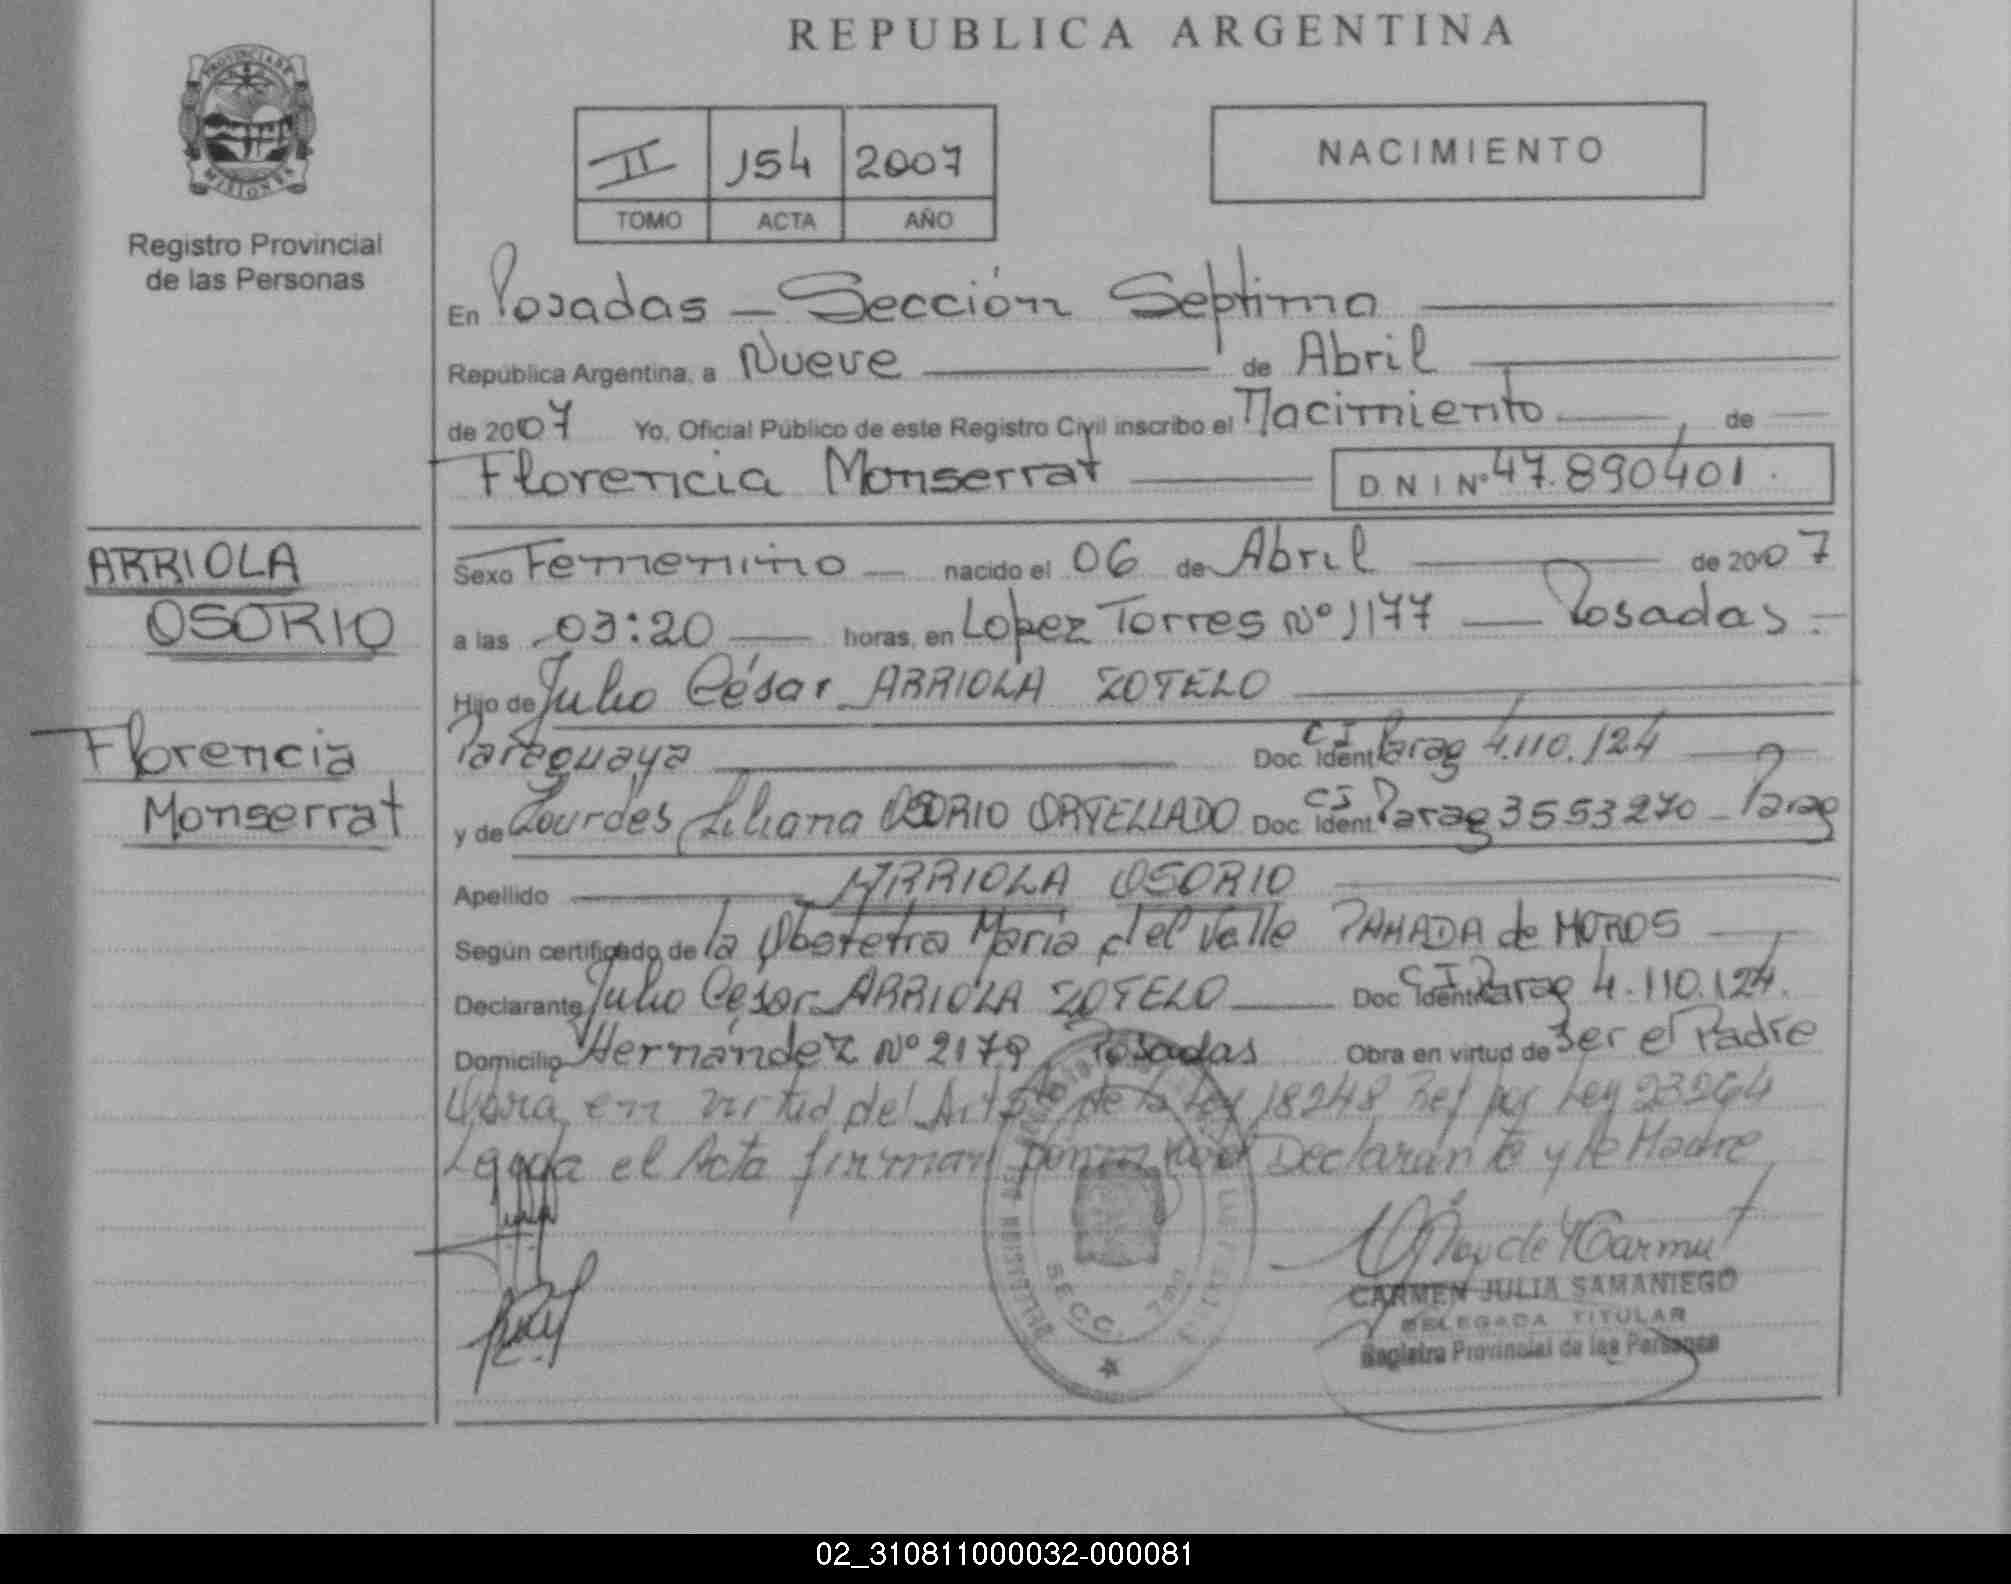 REPUBLICA ARGENTINA
PROVINCIA DE
MISIONES
Registro Provincial
de las Personas
II 154 2007
TOMO ACTA AÑO
NACIMIENTO
En Posadas — Sección Septima
República Argentina, a Nueve de Abril
de 2007 Yo, Oficial Público de este Registro Civil inscribo el Nacimiento de
Florencia Monserrat DNI Nº 47.890401.
ARRIOLA
OSORIO
Florencia
Monserrat
Sexo Femenino nacido el 06 de Abril de 2007
a las 03:20 horas, en Lopez Torres Nº 1177 — Posadas.-
Hijo de Julio César ARRIOLA ZOTELO
Paraguaya Doc. Ident CI Parag 4.110.124
y de Lourdes Liliana OSORIO ORTELLADO Doc. Ident. CI Parag 3553270 - Parag
Apellido ARRIOLA OSORIO
Según certificado de la Obstetra Maria del Valle de MOROS
Declarante Julio César ARRIOLA ZOTELO Doc. Ident CI Parag 4.110.124.
Domicilio Hernández Nº 2179 Posadas Obra en virtud de Ser el Padre
Obra en virtud del Art de la Ley 18248 Ref por Ley 23264
Leyda el Acta firman Declarante y la Madre
SECC. 7ma
CARMEN JULIA SAMANIEGO
DELEGADA TITULAR
Registro Provincial de las Personas
02_310811000032-000081